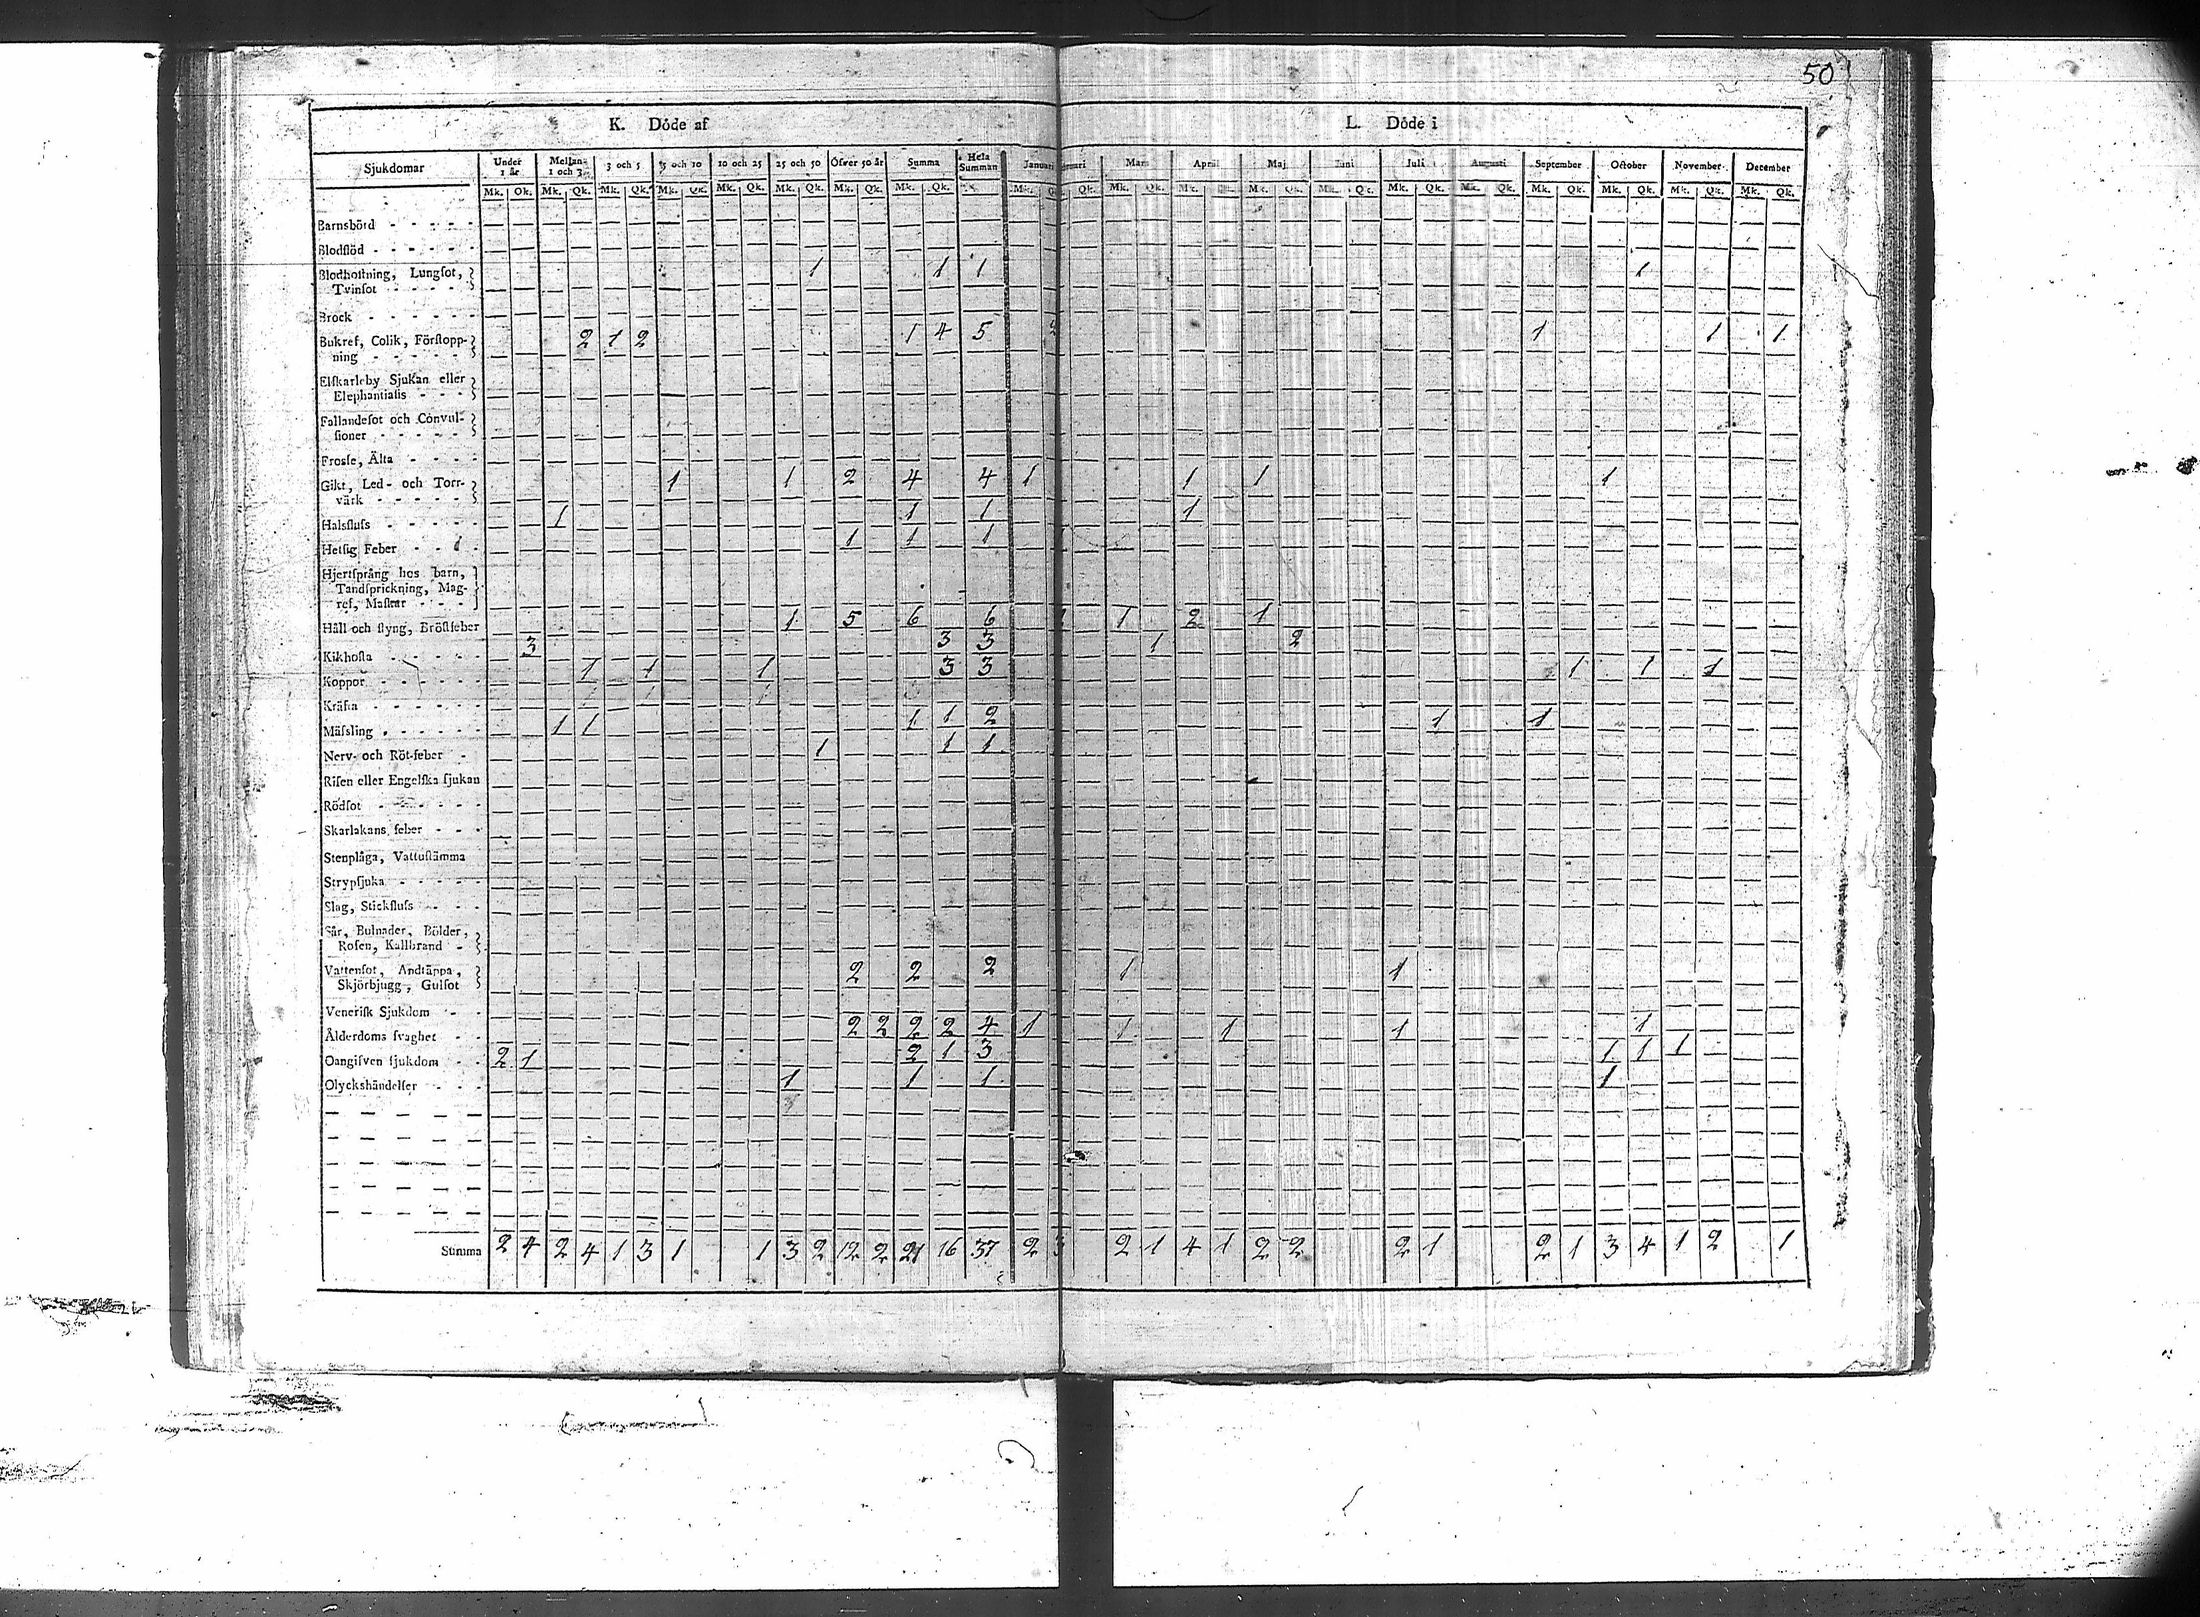 50
K. Döde af L. Döde i
Sjukdomar Under 1 år Mellan 1 och 3 3 och 5 5 och 10 10 och 25 25 och 50 Öfver 50 år Summa Hela Summan Januari Mars April Maj Juni Juli Augusti September October November December
Mk. Qk. Mk. Qk. Mk. Qk. Mk. Qk. Mk. Qk. Mk. Qk. Mk. Qk. Mk. Qk. Mk. Qk. Mk. Qk. Mk. Mk. Qk. Mk. Qk. Mk. Qk. Mk. Qk. Mk. Qk. Mk. Qk. Mk. Qk. Mk. Qk.
Barnsbörd
Blodflöd
Blodhostning, Lungsot, 1 1 1 1
Tvinsot
Brock
Bukref, Colik, Förstopp- 2 1 2 1 4 5 2 1 1 1
ning
Elskarleby Sjukan eller
Elephantiasis
Fallandesot och Convul-
sioner
Frossa, Älta
Gikt, Led- och Torr- 1 1 2 4 4 1 1 1 1
värk
Halsfluss 1 1 1 1
Hetsig Feber 1 1 1
Hjertsprång hos barn,
Tandsprickning, Mag-
ref, Maskar
Håll och styng, Bröstfeber 1 5 6 6 1 2 1
Kikhosta 3 3 3 1 2
Koppor 1 1 1 3 3 1 1 1
Kräfta
Mässling 1 1 1 1 2 1 1
Nerv- och Röt-feber 1 1 1
Risen eller Engelska sjukan
Rödsot
Skarlakans feber
Stenplåga, Vattustämma
Strypsjuka
Slag, Stickfluss
Sår, Bulnader, Bölder,
Rosen, Kallbrand
Vattensot, Andtäppa, 2 2 2 1 1
Skjörbjugg, Gulsot
Venerisk Sjukdom
Ålderdoms svaghet 2 2 2 2 4 1 1 1 1
Oangifven sjukdom 2 1 2 1 3 1 1 1
Olyckshändelser 1 1 1 1
Summa 2 4 2 4 1 3 1 1 3 2 12 2 21 16 37 2 3 2 1 4 1 2 2 2 1 2 1 3 4 1 2 1